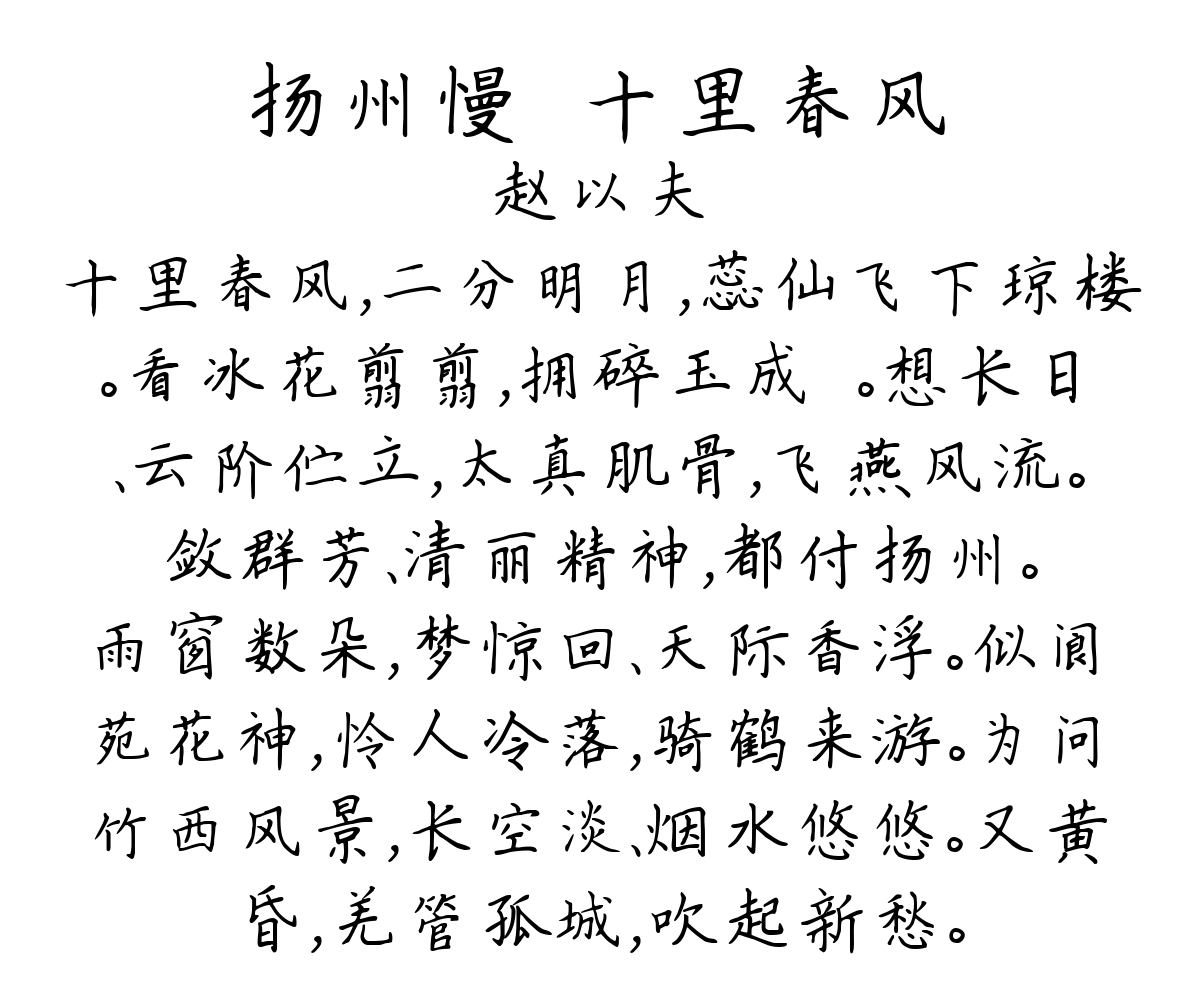 扬州慢 十里春风
赵以夫
十里春风,二分明月,蕊仙飞下琼楼
。看冰花翦翦,拥碎玉成 。想长日
、云阶伫立,太真肌骨,飞燕风流。
敛群芳、清丽精神,都付扬州。
雨窗数朵,梦惊回、天际香浮。似阆
苑花神,怜人冷落,骑鹤来游。为问
竹西风景,长空淡、烟水悠悠。又黄
昏,羌管孤城,吹起新愁。